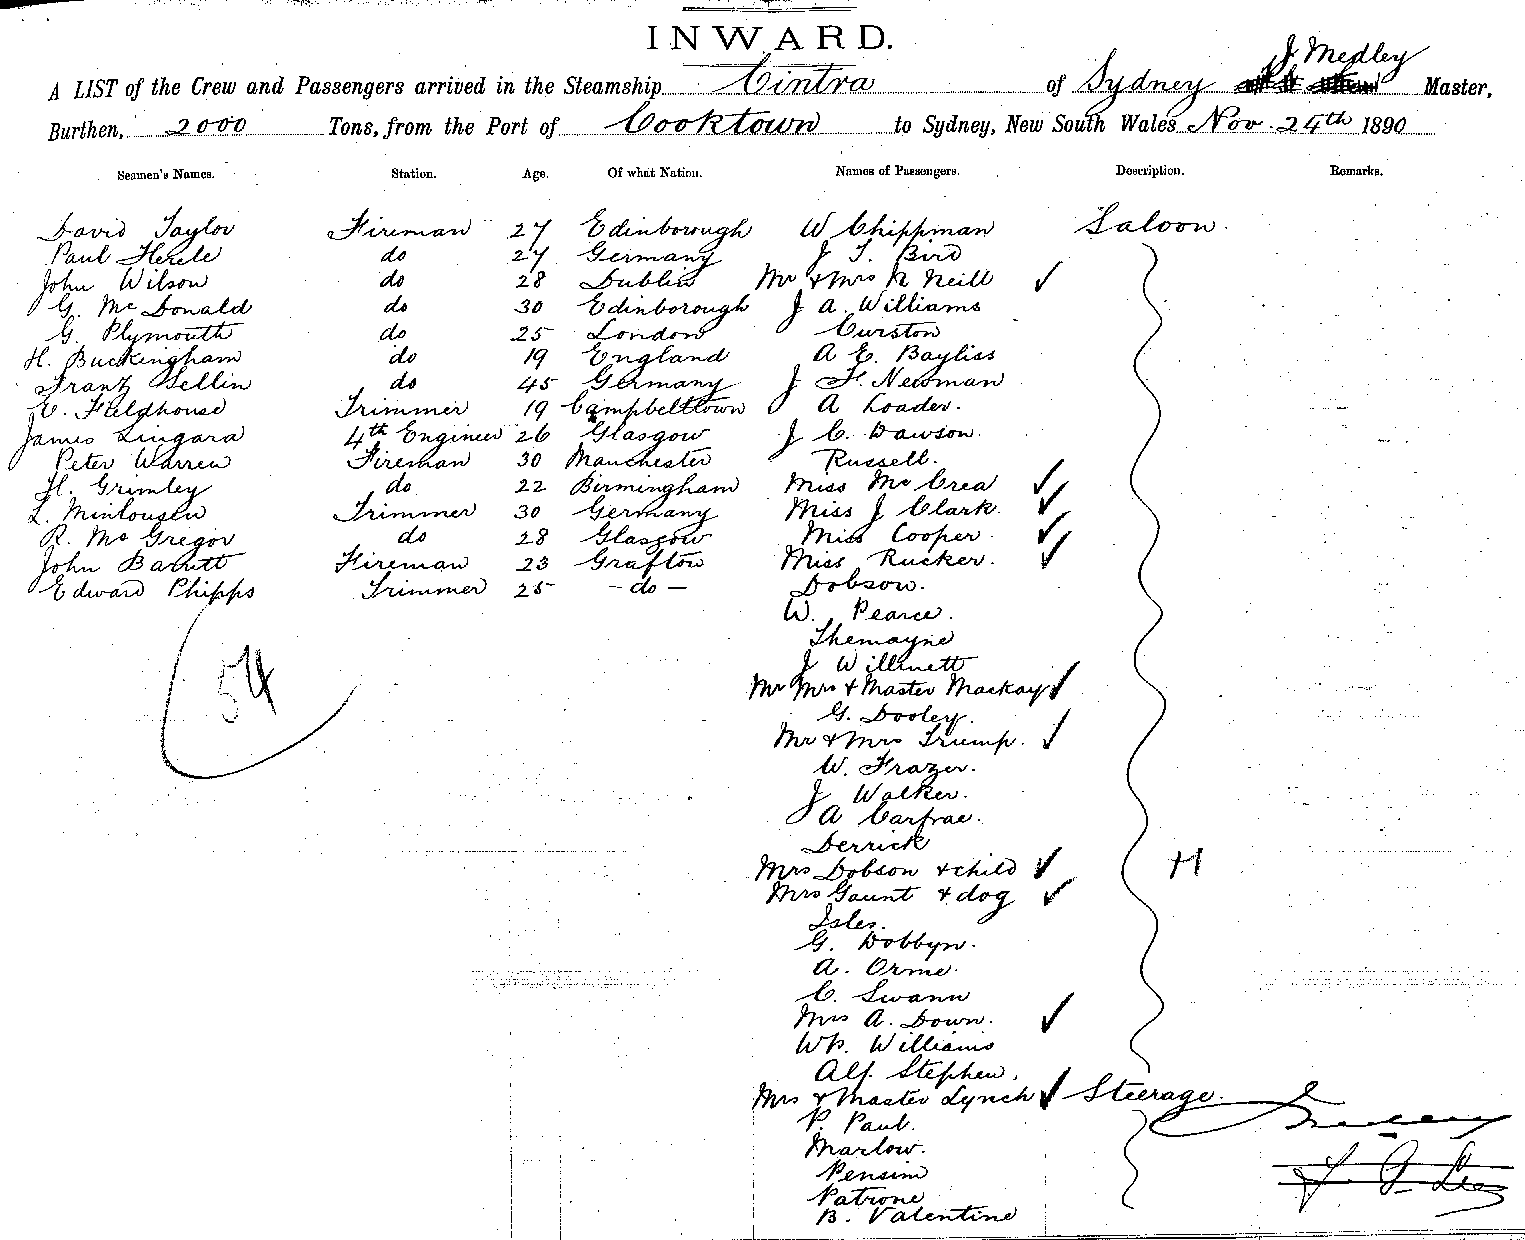 INWARD.
J. Medley
A LIST of the Crew and Passengers arrived in the Steamship Cintra of Sydney Master,
Burthen, 2000 Tons, from the Port of Cooktown to Sydney, New South Wales Nov. 24th 1890
Seamen's Names. Station. Age. Of what Nation. Names of Passengers. Description. Remarks.
David Taylor Fireman 27 Edinborough W Chippman Saloon.
Paul do 27 Germany J T. Bird
John Wilson do 28 Dublin Mr & Mrs R Neill ✓
G. Mc Donald do 30 Edinborough J A. Williams
G. Plymouth do 25 London Curston
H. Buckingham do 19 England A E. Bayliss
Franz Sellin do 45 Germany J F. Newman
E. Fieldhouse Trimmer 19 Campbelltown A Loader.
James Lingara 4th Engineer 26 Glasgow J C. Dawson.
Peter Warren Fireman 30 Manchester Russell.
H. Grimley do 22 Birmingham Miss Mc Crea ✓
L. Trimmer 30 Germany Miss J Clark. ✓
R. Mc Gregor do 28 Glasgow Miss Cooper. ✓
John Barrett Fireman 23 Grafton Miss Rucker. ✓
Edward Phipps Trimmer 25 - do - Dobson.
W. Pearce.
Themayne
54 J Willmett
Mr Mrs & Master Mackay ✓
G. Dooley.
Mr & Mrs Trump. ✓
W. Frazer.
J Walker.
A Carfrae.
Derrick
Mrs Dobson & child ✓ H
Mrs Gaunt & dog ✓
Isles.
G. Dobbyn.
A. Orme.
C. Swann
Mrs A. Down. ✓
Wm. Williams
Alf. Stephen.
Mrs & Master Lynch ✓ Steerage.
P. Paul.
Marlow.
Pensini
Patrone
B. Valentine